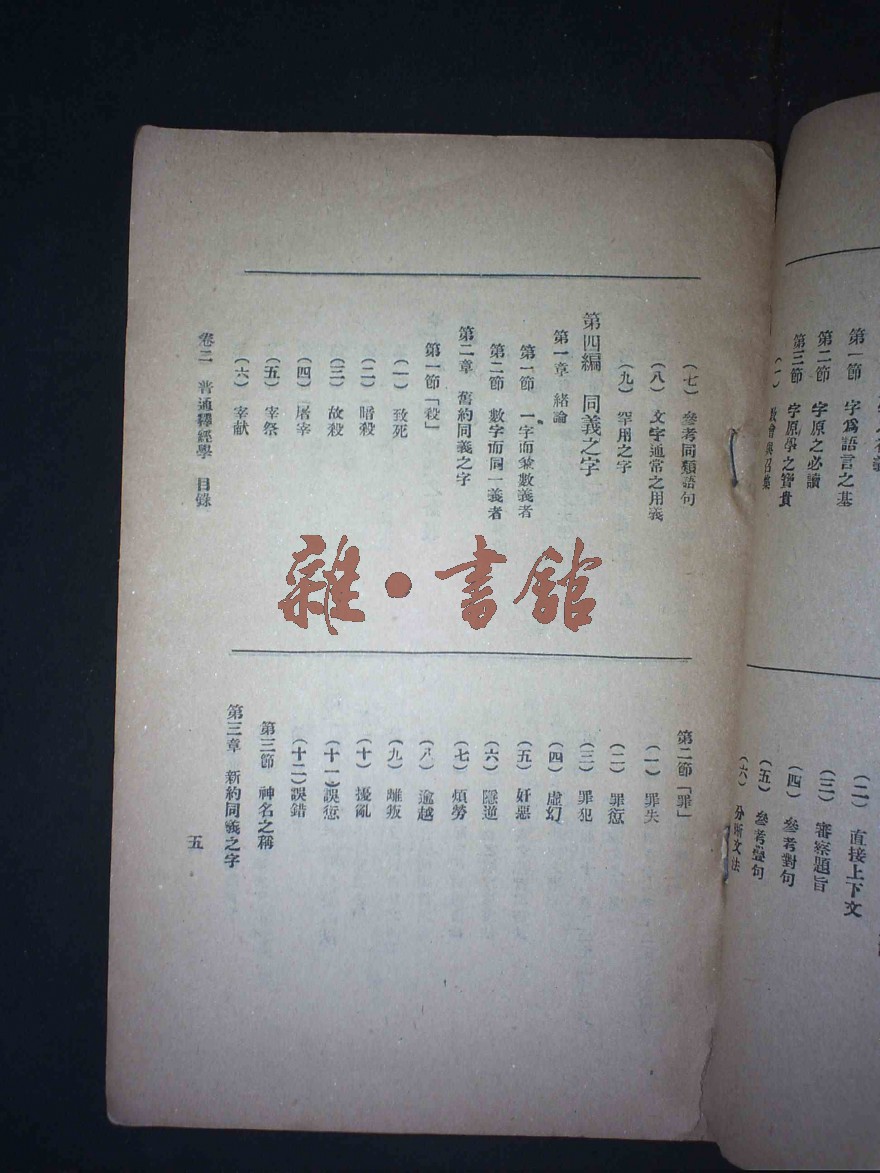 第一節 字爲語言之基
第二節 字原之必讀
第三節 字原學之寶貴
(一)
(二) 直接上下文
(三) 審察題旨
(四) 參考對句
(五) 參考疊句
(六) 分晰文法
(七) 參考同類語句
(八) 文字通常之用義
(九) 罕用之字
第四編 同義之字
第一章 緒論
第一節 一字而兼數義者
第二節 數字而同一義者
第二章 舊約同義之字
第一節「殺」
(一) 致死
(二) 暗殺
(三) 故殺
(四) 屠宰
(五) 宰祭
(六) 宰献
卷二 普通釋經學 目錄
第二節「罪」
(一) 罪失
(二) 罪愆
(三) 罪犯
(四) 虛幻
(五) 奸惡
(六) 隱逆
(七) 煩勞
(八) 逾越
(九) 離叛
(十) 擾亂
(十一)誤愆
(十二)誤錯
第三節 神名之稱
第三章 新約同義之字
五
雜·書館